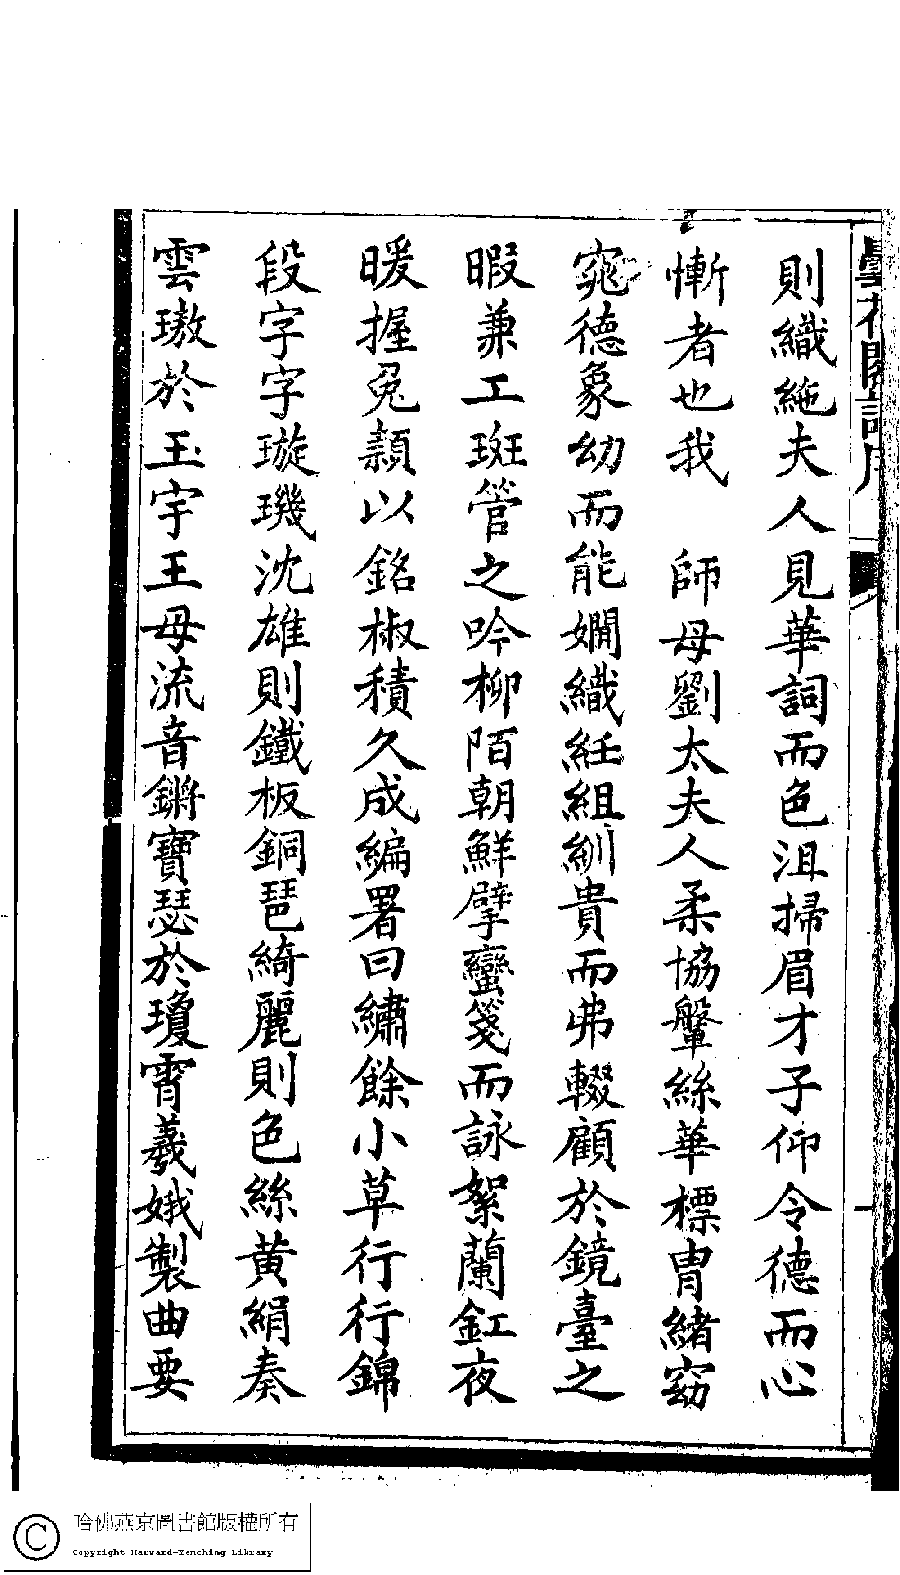 曇花閣詩序
則織絁夫人見華詞而色沮掃眉才子仰令德而心
慚者也我　師母劉太夫人柔協鞶絲華標胄緒窈
窕德象幼而能嫻織紝組紃貴而弗輟顧於鏡臺之
暇兼工斑管之吟柳陌朝鮮擘蠻箋而詠絮蘭釭夜
暖握兔潁以銘椒積久成編署曰繡餘小草行行錦
段字字璇璣沈雄則鐵板銅琶綺麗則色絲黃絹奏
雲璈於玉宇王母流音鏘寶瑟於瓊霄羲娥製曲要
哈佛燕京圖書館版權所有
Copyright Harvard-Yenching Library